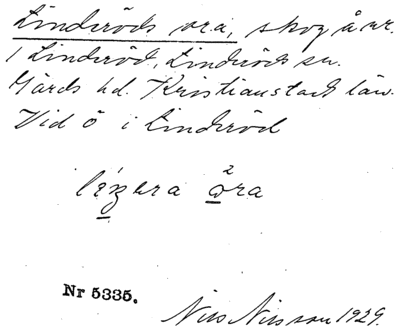 Linderöds ora, skog å nr.
1 Linderöd, Linderöds sn.
Gärds hd. Kristianstads län.
Vid ö i Linderöd
ora
Nr 5335.
Nils Nilsson 1929.